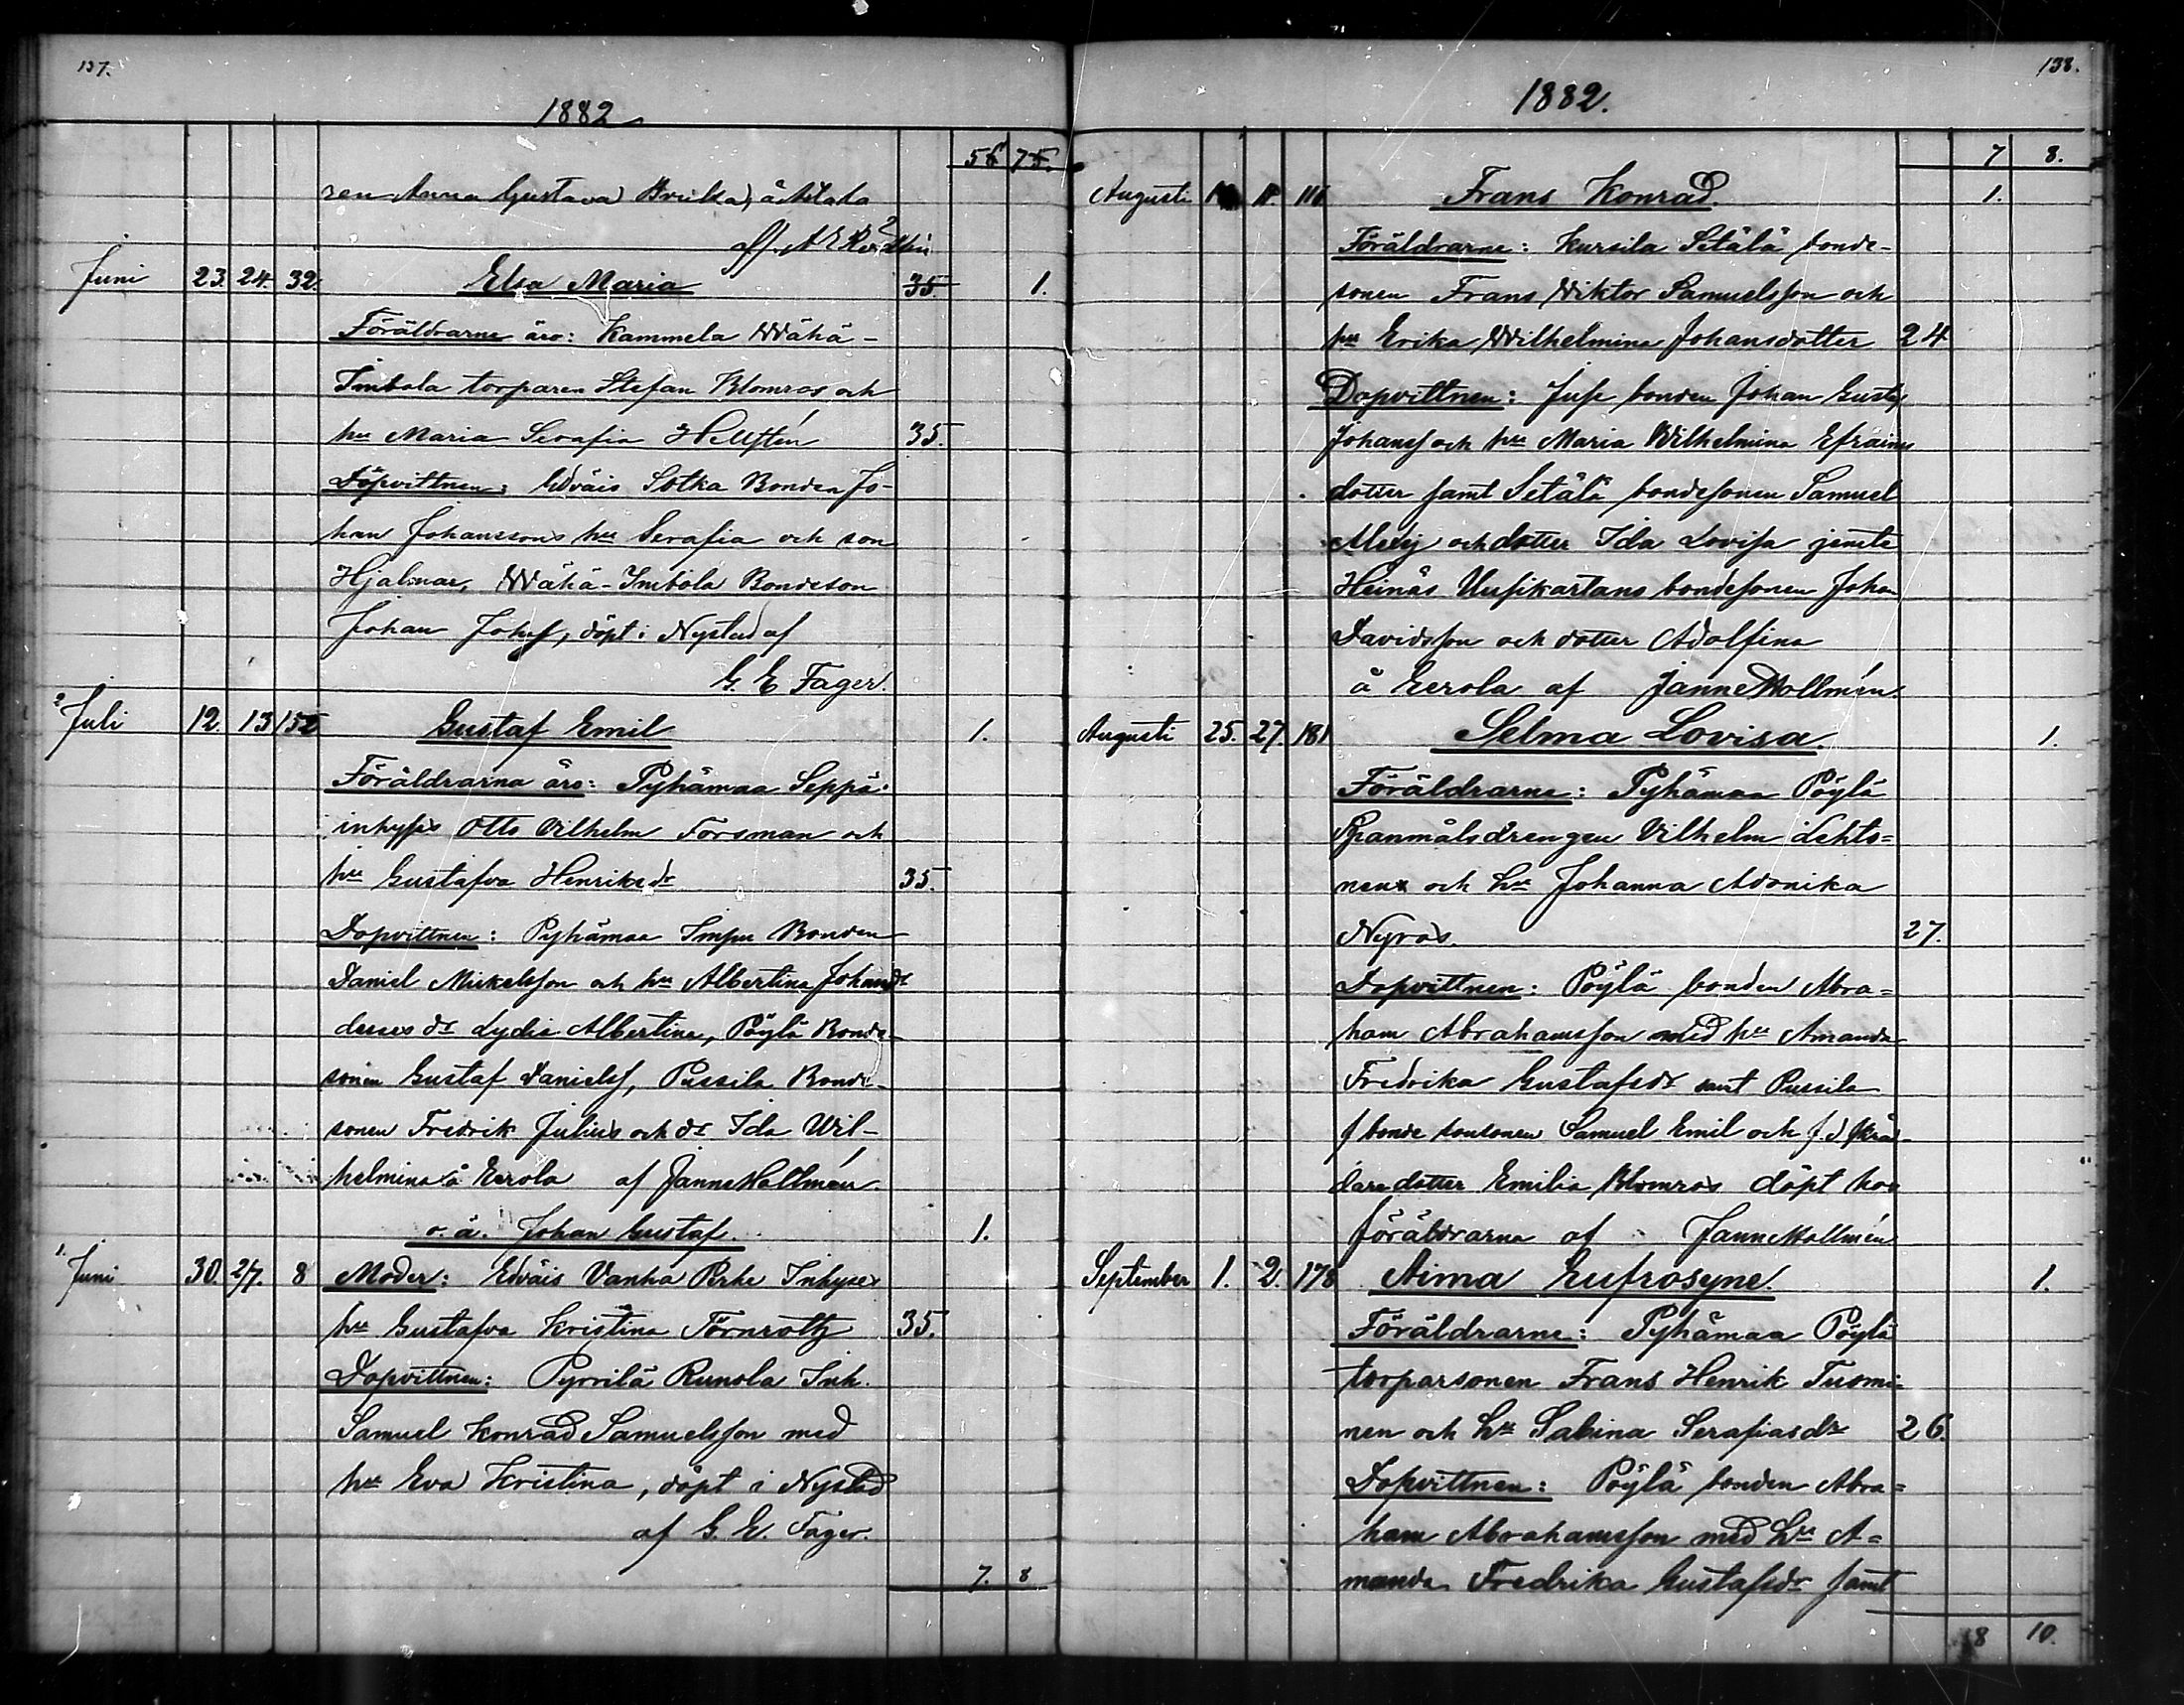 137.
1882
56 75.
ren Anna Gustava å
Juni 23. 24. 32. Elsa Maria 35. 1.
Föräldrarne äro: Kammela Wähä-
Imbola torparen Stefan Blomros och
hu Maria Serafia Hellstén 35.
Dopvittnen: Edväis Sotka Bonden Jo-
han Johanssons hu Serafia och son
Hjalmar, Wähä-Imbola Bondeson
Johan Johsf, döpt i Nystad af
G. E Fager.
2 Juli 12. 13 152 Gustaf Emil 1.
Föräldrarna äro: Pyhämaa Seppä
inhyses Otto Vilhelm Forsman och
hu Gustafva Henriksdr 35.
Dopvittnen: Pyhämaa Impu Bonden
Daniel Mickelsson och hu Albertina Johansdr
desses dr Lydia Albertina, Pöylä Bonde-
sonen Gustaf Danielsf, Pussila Bonde-
sonen Fredrik Julius och dr Ida Wil-
helmina å Eerola af Janne Hallmén
o. ä. Johan Gustaf. 1.
1. Juni 30. 27. 8 Moder: Edväis Vanha Perhe Inhyses
hu Gustafva Kristina Törnroth 35.
Dopvittnen: Pyrrilä Runola Inh.
Samuel Konrad Samuelsson med
hu Eva Kristina, döpt i Nystad
af G. E. Fager.
7. 8
138.
1882.
7 8.
Augusti 116 Frans Konrad. 1.
Föräldrarne: Kursila Setälä bonde-
sonen Frans Wiktor Samuelsson och
hu Erika Wilhelmina Johansdotter 24
Dopvittnen: Juse bonden Johan Gustaf
Johansf och hu Maria Wilhelmina Efraims
dotter samt Setälä bondesonen Samuel
och dotter Ida Lovisa jemte
Heinäs Uusikartano bondesonen Johan
Davidsson och dotter Adolfina
å Eerola af Janne Hallmén.
Augusti 25. 27. 181 Selma Lovisa. 1.
Föräldrarne: Pyhämaa Pöylä
Spanmålsdrengen Vilhelm Lehto=
nen och hu Johanna Adonika
Nyros. 27.
Dopvittnen: Pöylä bonden Abra=
ham Abrahamsson med hu Amanda
Fredrika Gustafsdr samt Pussila
f bonde sonsonen Samuel Emil och f. d skräd-
dare dotter Emilia Blomros döpt hos
föräldrarna af Janne Hallmén
September 1. 2. 178 Aima Eufrosyne. 1.
Föräldrarne: Pyhämaa Pöylä
torparsonen Frans Henrik Tuomi-
nen och hu Sabina Serafiasdr 26.
Dopvittnen: Pöylä bonden Abra=
ham Abrahamsson med hu A=
manda Fredrika Gustafsdr samt
8 10.